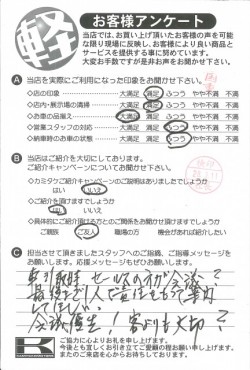 軽
お客様アンケート
当店では、お買い上げ頂いたお客様の声を可能
な限り現場に反映し、お客様により良い商品と
サービスを提供する事に努めています。
大変お手数ですが是非お声をお聞かせ下さい。
A 当店を実際にご利用になった印象をお聞かせ下さい。
◇店の印象 大満足 満足 ふつう やや不満 不満
◇店内・展示場の清掃 大満足 満足 ふつう やや不満 不満
◇お車の品揃え 大満足 満足 ふつう やや不満 不満
◇営業スタッフの対応 大満足 満足 ふつう やや不満 不満
◇納車時のお車の状態 大満足 満足 ふつう やや不満 不満
B 当店はご紹介を大切にしております。
ご紹介キャンペーンについてお聞かせ下さい。
◇カミタケご紹介キャンペーンのご説明はありましたでしょうか
はい いいえ
◇ご紹介カードをお渡しさせて頂けましたでしょうか
はい いいえ
◇具体的にご紹介頂ける方とのご関係をお聞かせ頂けますでしょうか
ご親族 ご友人 職場の方 機会があれば紹介したい
C 担当させて頂きましたスタッフへのご指摘、ご指導メッセージを
お願いします。応援メッセージもぜひお願いします。
最後まで1人で責任をもって
してほしい
K
ご協力に心よりお礼を申し上げます。
今後とも宜しくお引き立てご愛顧の程お願い申し上げます。
またのご来店を心からお待ちしております。